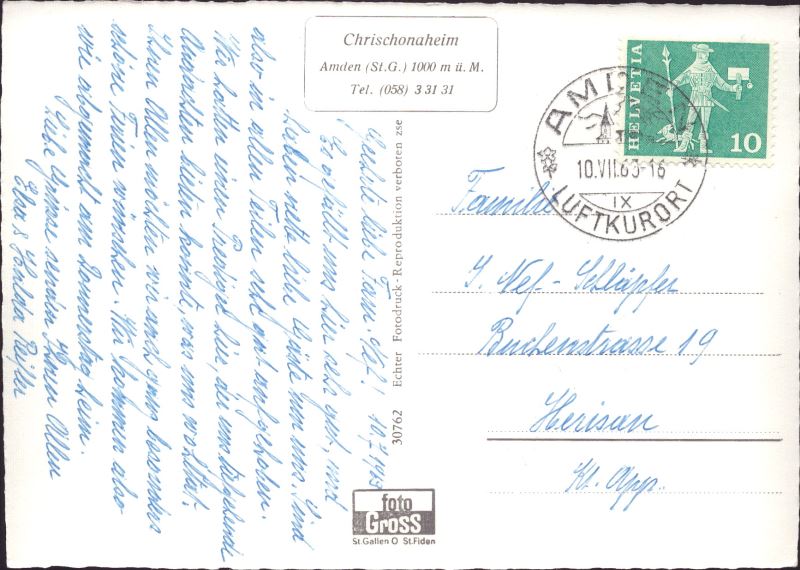 Chrischonaheim
Amden (St.G.) 1000 m ü. M.
Tel. (058) 3 31 31
HELVETIA
10
AMDEN
10.VII.63-16
IX
LUFTKURORT
Familie
J. Nef-Schläpfer
Buchenstrasse 19
Herisau
Kt. App.
30762 Echter Fotodruck - Reproduktion verboten zse
foto
Gross
St.Gallen O St.Fiden
Geehrte liebe Fam. Nef! 10.7.1963
Es gefällt uns hier sehr gut, und
haben nette liebe Gäste um uns. Sind
also in allen Teilen sehr gut aufgehoben.
Wir hatten einen Prediger hier, der uns
Andachten bieten konnte, was uns wohltat.
Ihnen Allen möchten wir auch ganz besonders
schöne Ferien wünschen. Wir kommen also
wie abgemacht am Donnerstag heim.
Liebe Grüsse senden Ihnen Allen
Elsa & Hulda